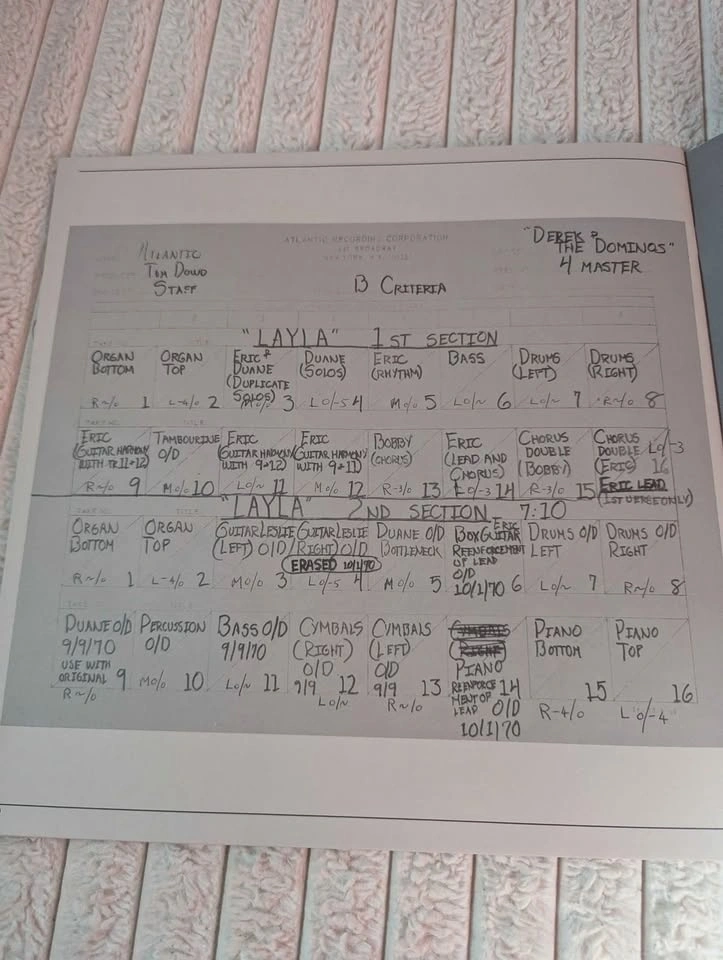 ATLANTIC RECORDING CORPORATION
BROADWAY
ATLANTIC
TOM DOWD
STAFF
B CRITERIA
"DEREK &
THE DOMINOS"
4 MASTER
"LAYLA" 1ST SECTION
ORGAN BOTTOM R~/o 1
ORGAN TOP L-4/o 2
ERIC & DUANE (DUPLICATE SOLOS) M o/o 3
DUANE (SOLOS) L o/-5 4
ERIC (RHYTHM) M o/o 5
BASS L o/~ 6
DRUMS (LEFT) L o/~ 7
DRUMS (RIGHT) R~/o 8
ERIC (GUITAR HARMONY WITH TR 11+12) R~/o 9
TAMBOURINE O/D M o/o 10
ERIC (GUITAR HARMONY WITH 9+12) L o/~ 11
ERIC (GUITAR HARMONY WITH 9+11) M o/o 12
BOBBY (CHORUS) R-3/o 13
ERIC (LEAD AND CHORUS) L o/-3 14
CHORUS DOUBLE (BOBBY) R-3/o 15
CHORUS DOUBLE (ERIC) L o/-3 16 ERIC LEAD (1ST VERSE ONLY)
"LAYLA" 2ND SECTION 7:10
ORGAN BOTTOM R~/o 1
ORGAN TOP L-4/o 2
GUITAR LESLIE (LEFT) O/D M o/o 3
GUITAR LESLIE (RIGHT) O/D ERASED 10/1/70 L o/-5 4
DUANE O/D BOTTLENECK M o/o 5
ERIC BOX GUITAR REENFORCEMENT OF LEAD O/D 10/1/70 6
DRUMS O/D LEFT L o/~ 7
DRUMS O/D RIGHT R~/o 8
DUANE O/D 9/9/70 USE WITH ORIGINAL R~/o 9
PERCUSSION O/D M o/o 10
BASS O/D 9/9/70 L o/~ 11
CYMBALS (RIGHT) O/D 9/9 L o/~ 12
CYMBALS (LEFT) O/D 9/9 R~/o 13
CYMBALS RIGHT PIANO REENFORCEMENT OF LEAD O/D 10/1/70 14
PIANO BOTTOM R-4/o 15
PIANO TOP L o/-4 16